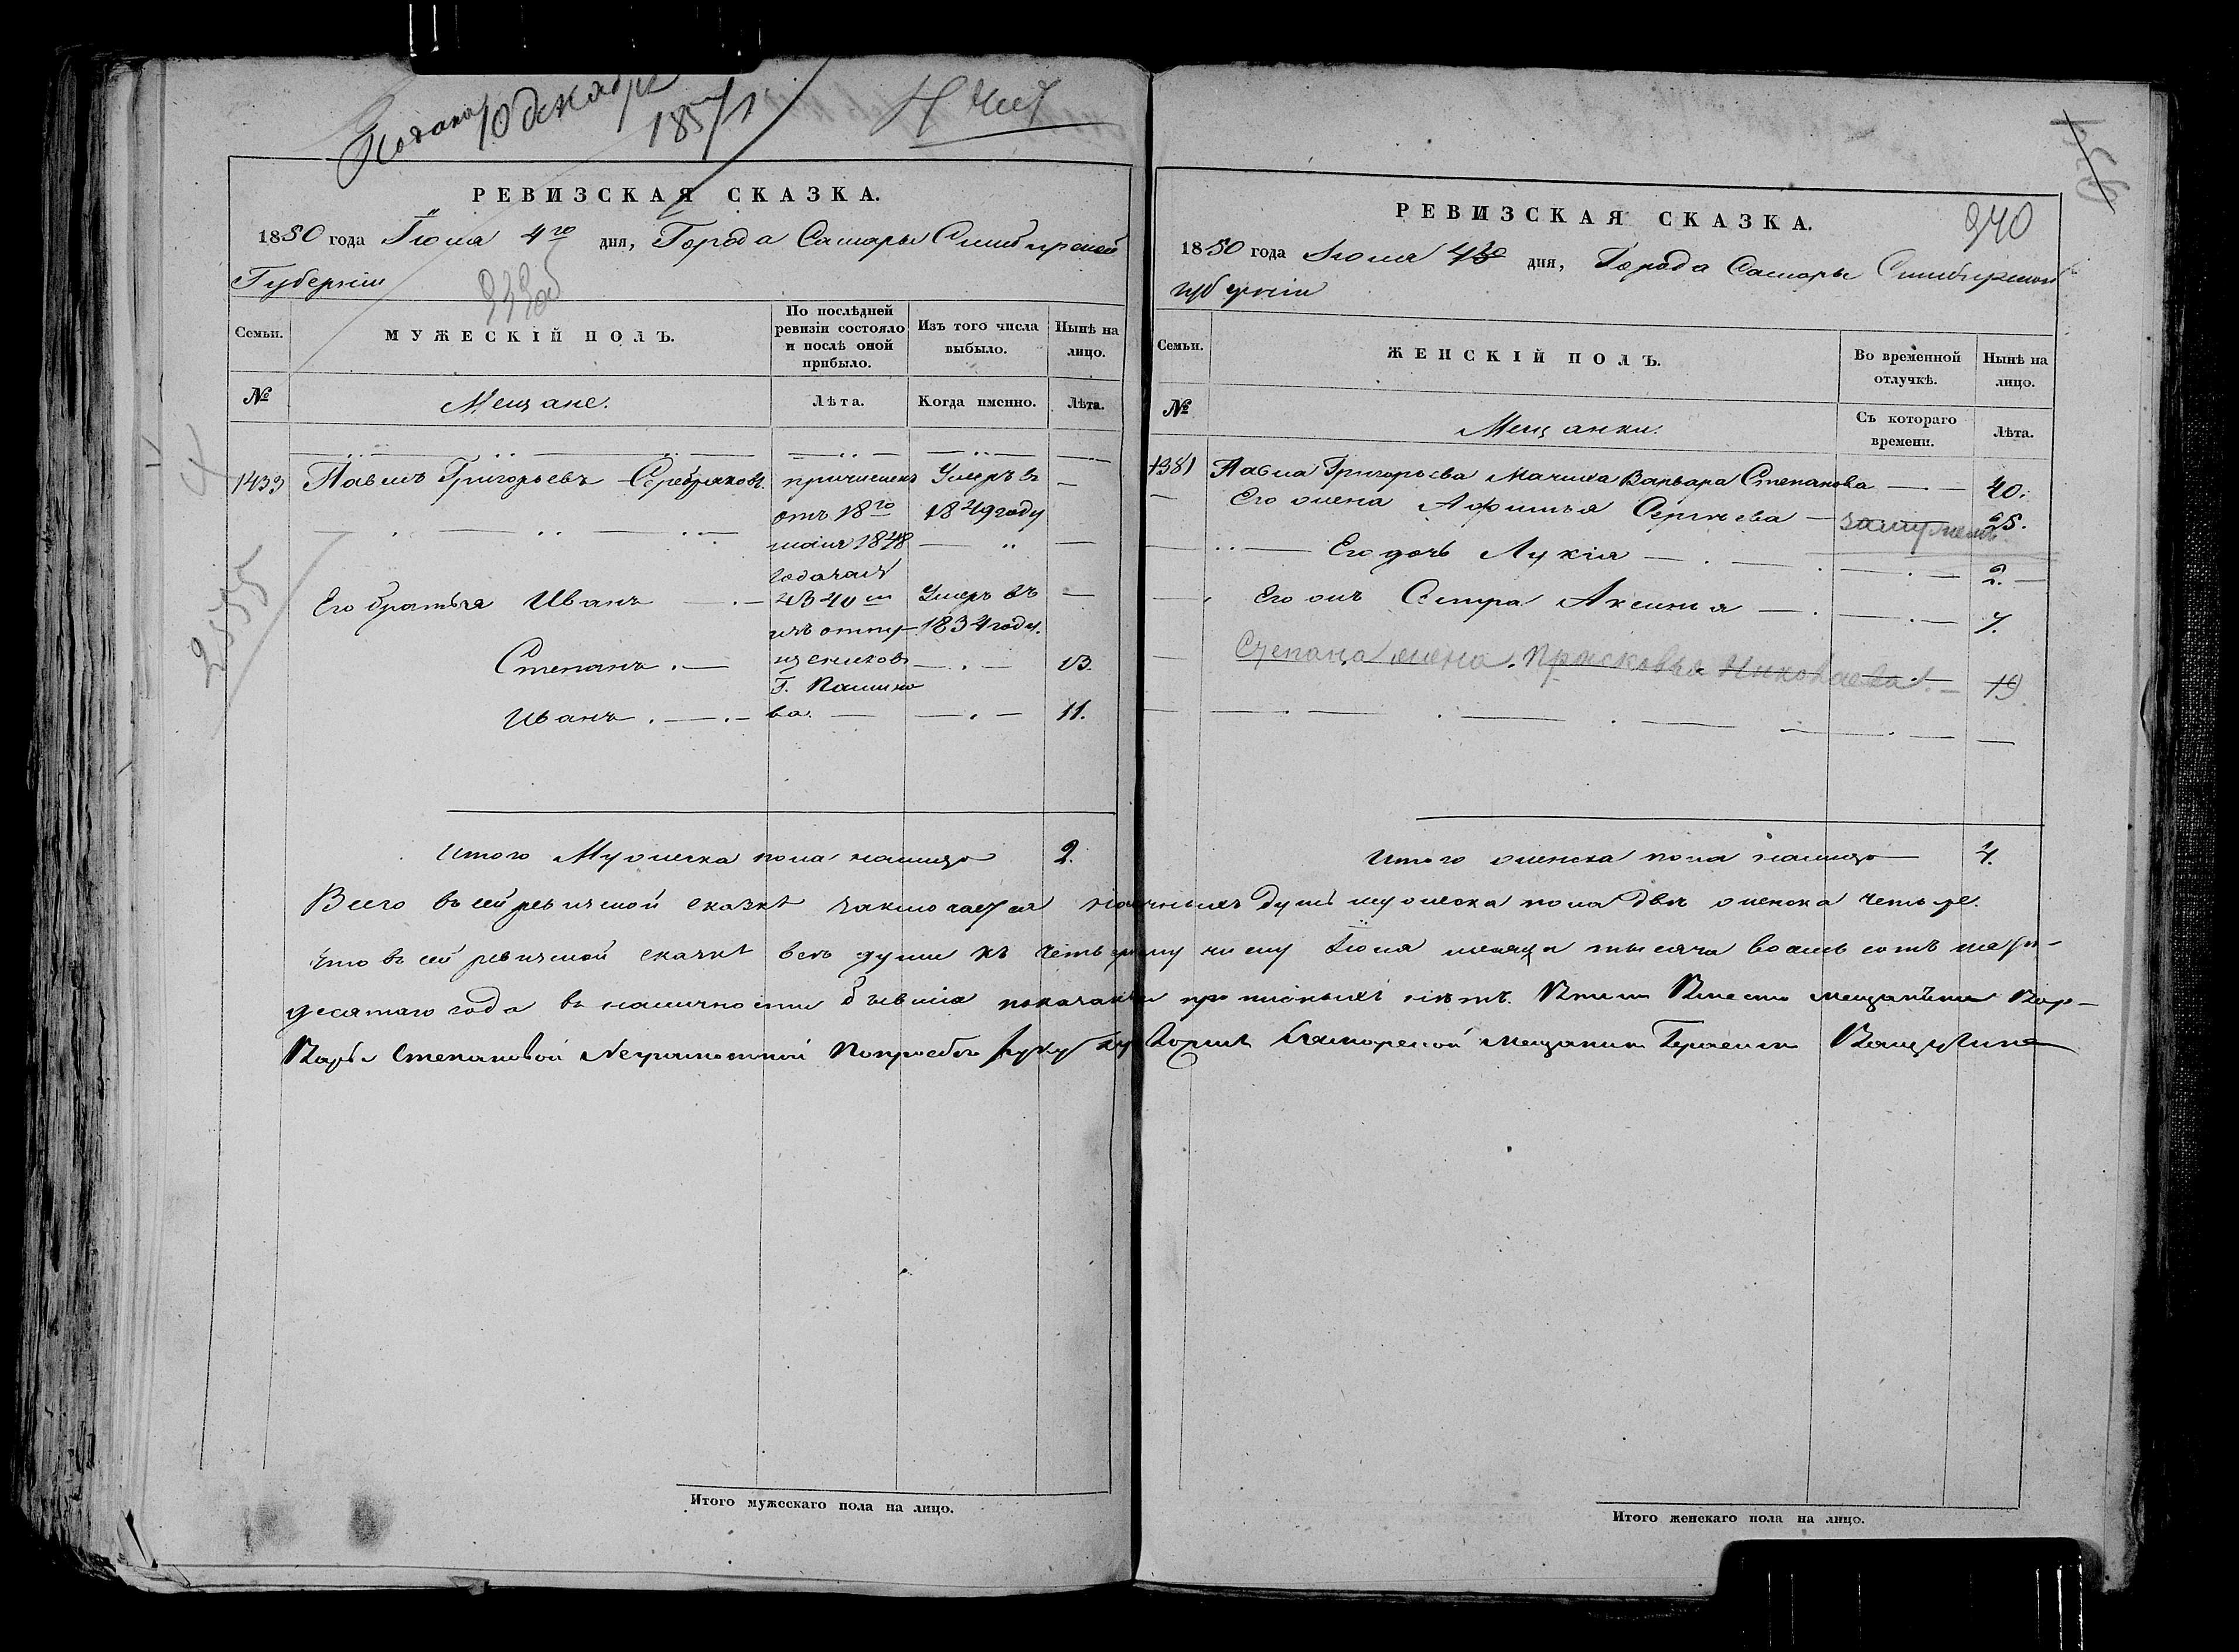 Подана 10 декабря
1857 г.
РЕВИЗСКАЯ СКАЗКА.
1850 года Іюля 4го дня, Города Самары Симбирской
Губерніи
339об
Семьи.
МУЖЕСКІЙ ПОЛЪ.
По послѣдней ревизіи состояло и послѣ оной прибыло.
Изъ того числа выбыло.
Нынѣ на лицо.
№
Мещане.
Лѣта.
Когда именно.
Лѣта.
1433 Павелъ Григорьевъ Серебряковъ. причисленъ Умеръ въ
отъ 18го 1849 году
маія 1848
года за №
4340 из отпу-
Его братья Иванъ Умеръ въ
1834 году.
Степанъ щениковъ 13.
Г. Пашко
Иванъ ва. 11.
Итого Мужеска пола налицо 2.
2555
Итого мужескаго пола на лицо.
340
РЕВИЗСКАЯ СКАЗКА.
1850 года Іюля 4го дня, Города Самары Симбирской
губерніи
Семьи.
ЖЕНСКІЙ ПОЛЪ.
Во временной отлучкѣ.
Нынѣ на лицо.
№
Мещанки.
Съ котораго времени.
Лѣта.
1381 Павла Григорьева Мачиха Варвара Степанова 40.
Его жена Афимья Сергѣева замужем 25.
Его дочь Лукія 2.
Его жъ Сестра Аксинья 7.
Степана жена Прасковья Николаева 19
Итого женска пола налицо 4.
Всего въ сей ревизской сказкѣ заключается наличныхъ душъ мужеска пола двѣ женска четыре.
Что въ сей ревизской сказкѣ всѣ души къ четвертому числу Іюля месяца тысяча восемь сотъ пяти-
десятаго года въ наличности бывшія показаны прописныхъ нѣтъ. Вместо мещанки Вар-
вары Степановой Неграмотной По просьбе руку приложилъ Самарской мещанин Герасим
Итого женскаго пола на лицо.